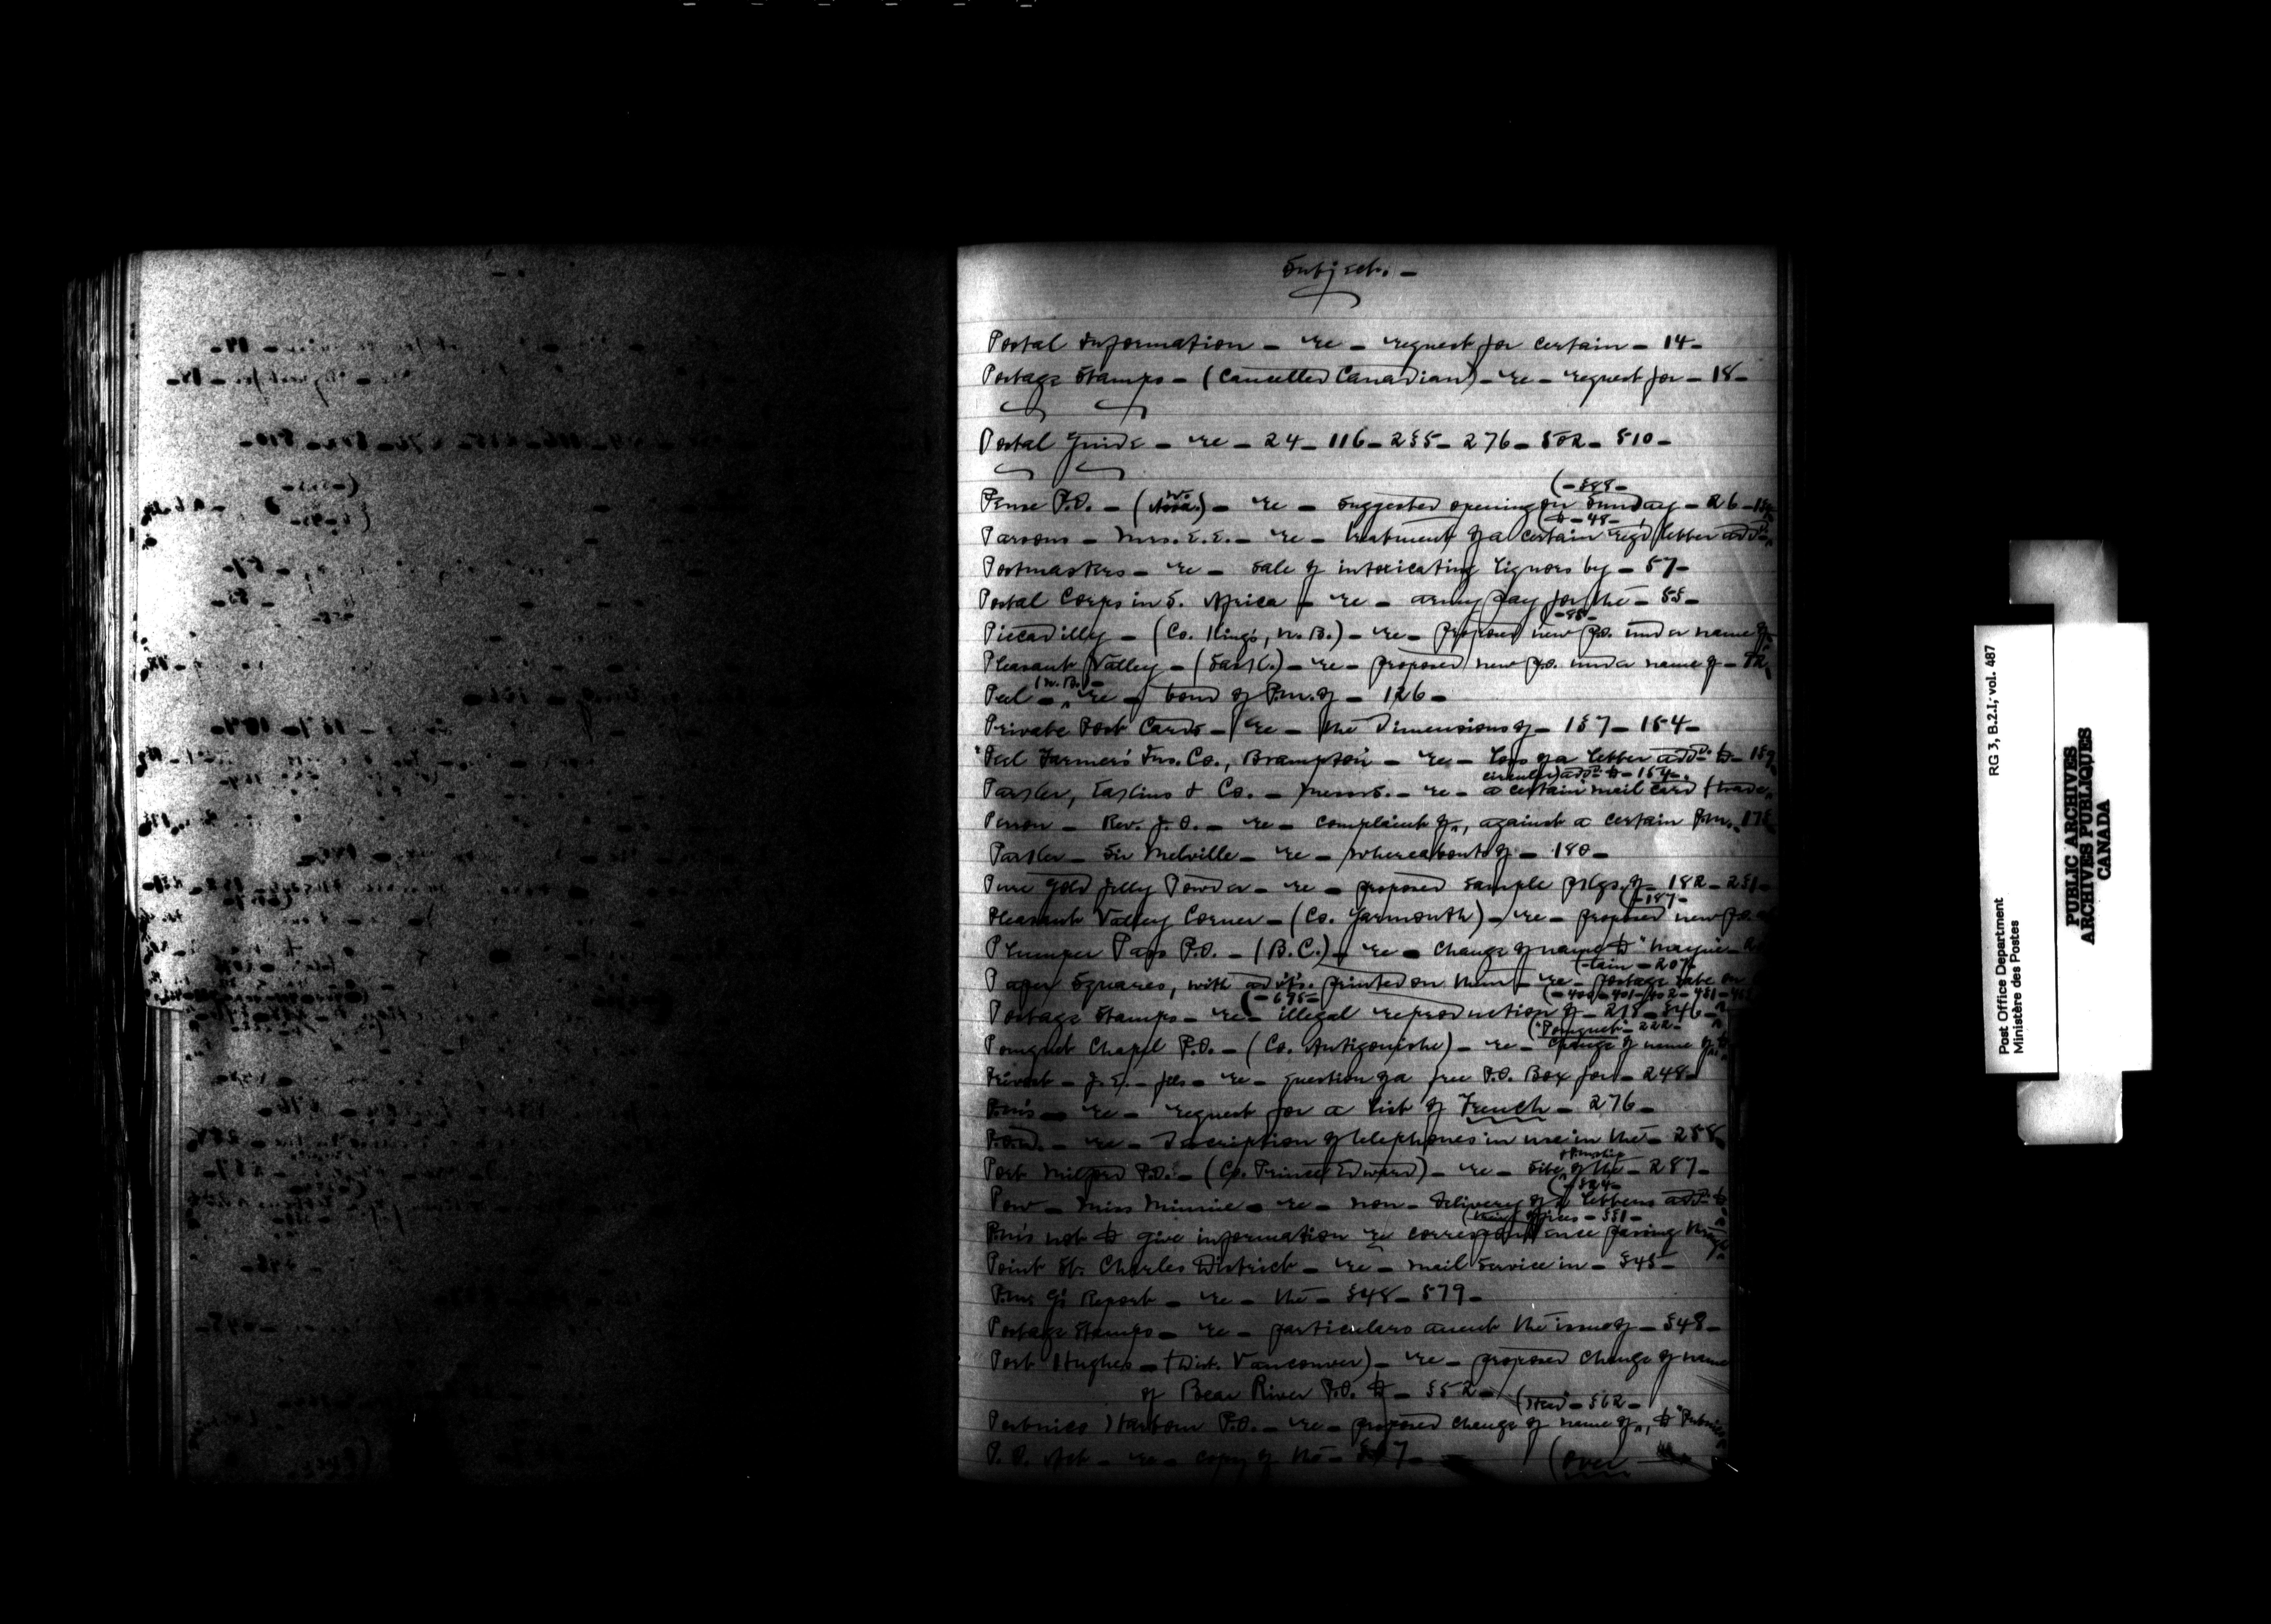 Subject. -
Postal Information - re - request for certain - 14 -
Postage Stamps - (Cancelled Canadian) - re - request for - 18 -
Postal Guide - re - 24 - 116 - 255 - 276 - 502 - 510 -
Pense P.O. - (W. Assa.) - re - suggested opening on Sunday - 26 -
Parsons - Mrs. E.E. - re - treatment of a certain regd letter addd to - 48 -
Postmasters - re - sale of intoxicating liquors by - 57 -
Postal Corps in S. Africa - re - army pay for the - 55 -
Piccadilly - (Co. King's, N.B.) - re - proposed new p.o. under name of - 85 -
Pleasant Valley - (Sask.) - re - proposed new p.o. under name of -
Peel - (N.B.) - re - bond of P.m. of - 126 -
Private Post Cards - re - the dimensions of - 157 - 154 -
"Peel Farmers' Ins. Co., Brampton - re - loss of a letter addd. to - 159
Parker, Eakins & Co. - Messrs. - re - a certain mail card (trade circular) addd to - 164 -
Rev. J.O. - re - complaint of, against a certain P.m. -
Parker - Sir Melville - re - whereabouts of - 180 -
Pure Gold Jelly Powder - re - proposed sample pkgs. of - 182 - 251 -
Pleasant Valley Corner - (Co. Yarmouth) - re - proposed new p.o. at - 187 -
Plumper Pass P.O. - (B.C.) - re - change of name to "Mayne -
Paper Squares, with advts. printed on them - re - postage rate on (-tain - 207 -
Postage Stamps - re - illegal reproduction of - 218 - 546 -
(- 695 -
(- 400 - 401 - 402 - 451 -
Pomquet Chapel P.O. - (Co. Antigonishe) - re - change of name of, to ("Pomquet" - 222 -
Prévost - J.E. - fils - re - question of a free P.O. Box for - 248 -
P.m's - re - request for a list of French - 276 -
re - description of telephones in use in the - 288
Port Milford P.O. - (Co. Prince Edward) - re - site of the - 287 -
Pow - Miss Minnie - re - non-delivery of a letter addd to (- 524 -
P.m's not to give information re correspondence passing thro' (their offices - 551 -
Point St. Charles District - re - mail service in - 545 -
P.m. G's Report - re - the - 548 - 579 -
Postage Stamps - re - particulars anent the issue of - 548 -
Port Hughes - (Dist. Vancouver) - re - proposed change of name
of Bear River P.O. to - 552 -
Pubnico Harbour P.O. - re - proposed change of name of, to "Pubnico (Head" - 562 -
P.O. Act - re - copy of the -
(over
Post Office Department
Ministère des Postes
RG 3, B.2.I, vol. 487
PUBLIC ARCHIVES
ARCHIVES PUBLIQUES
CANADA